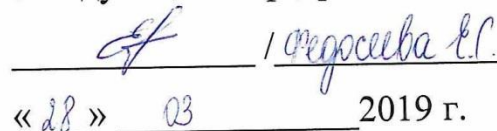 / Федосеева Е.Г.
« 28 » 03 2019 г.